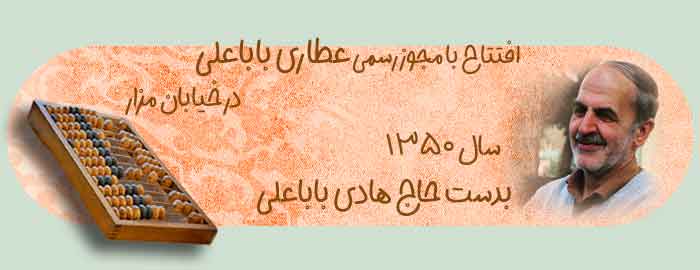 افتتاح با مجوز رسمی عطاری باباعلی
در خیابان مزار
سال ۱۳۵۰
بدست حاج هادی باباعلی